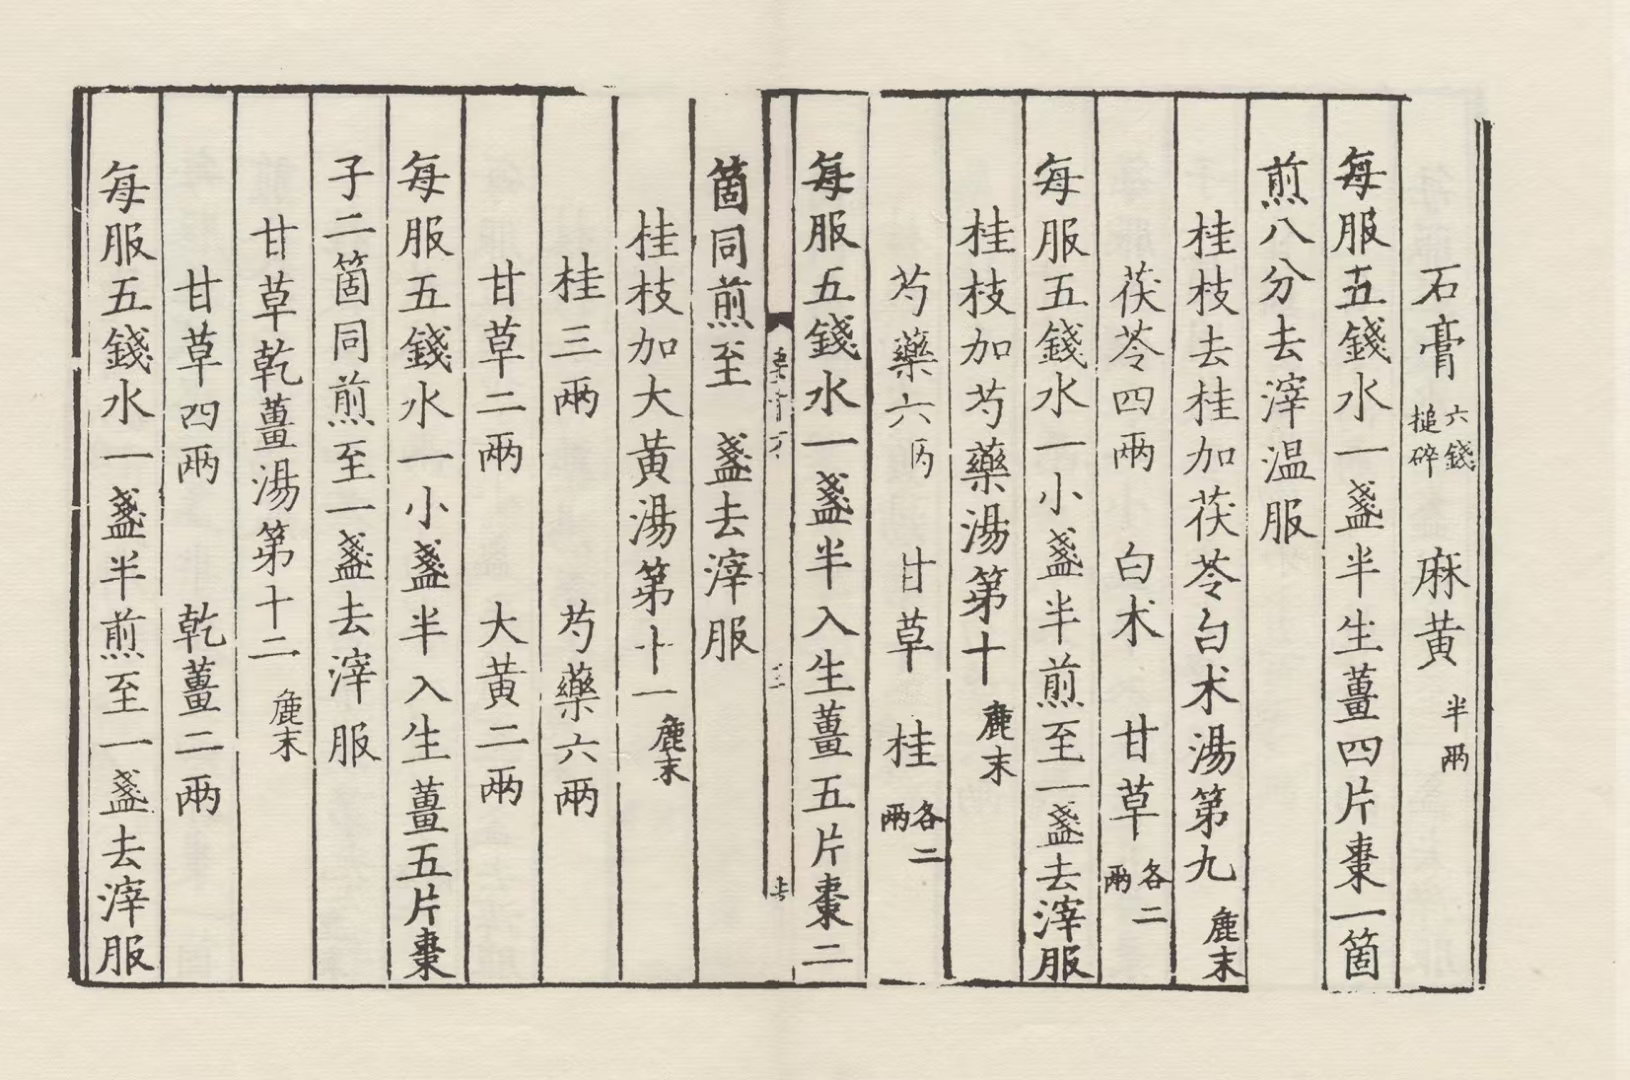 石膏六錢搥碎 麻黄半兩
每服五錢水一盞半生薑四片棗一箇
煎八分去滓温服
桂枝去桂加茯苓白术湯第九麄末
茯苓四兩 白术 甘草各二兩
每服五錢水一小盞半煎至一盞去滓服
桂枝加芍藥湯第十麄末
芍藥六兩 甘草 桂各二兩
每服五錢水一盞半入生薑五片棗二
箇同煎至 盞去滓服
桂枝加大黄湯第十一麄末
桂三兩 芍藥六兩
甘草二兩 大黄二兩
每服五錢水一小盞半入生薑五片棗
子二箇同煎至一盞去滓服
甘草乾薑湯第十二麄末
甘草四兩 乾薑二兩
每服五錢水一盞半煎至一盞去滓服